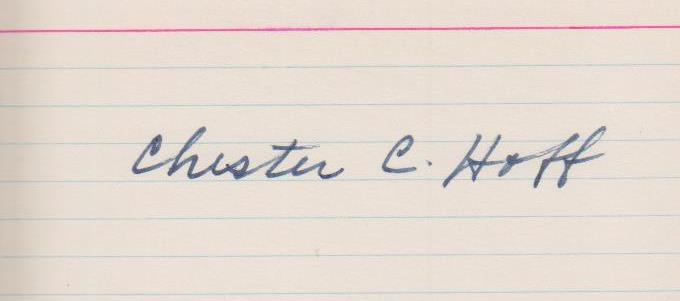 Chester C. Hoff